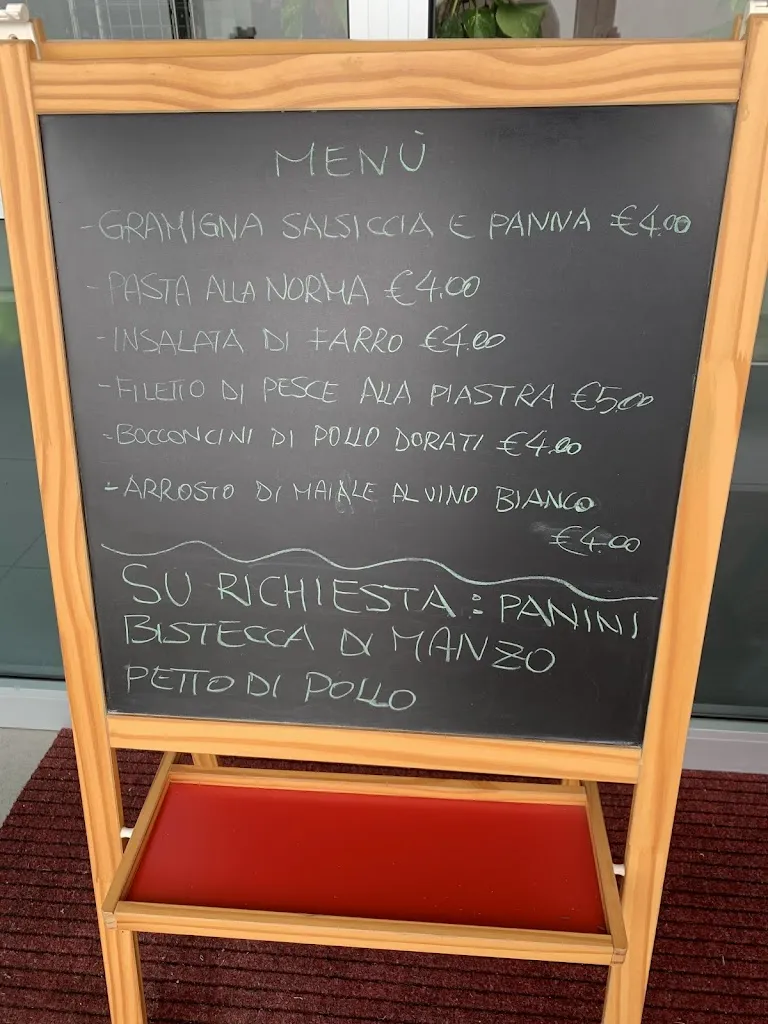 MENÙ
- GRAMIGNA SALSICCIA E PANNA €4.00
- PASTA ALLA NORMA €4.00
- INSALATA DI FARRO €4.00
- FILETTO DI PESCE ALLA PIASTRA €5.00
- BOCCONCINI DI POLLO DORATI €4.00
- ARROSTO DI MAIALE AL VINO BIANCO
€4.00
SU RICHIESTA: PANINI
BISTECCA DI MANZO
PETTO DI POLLO